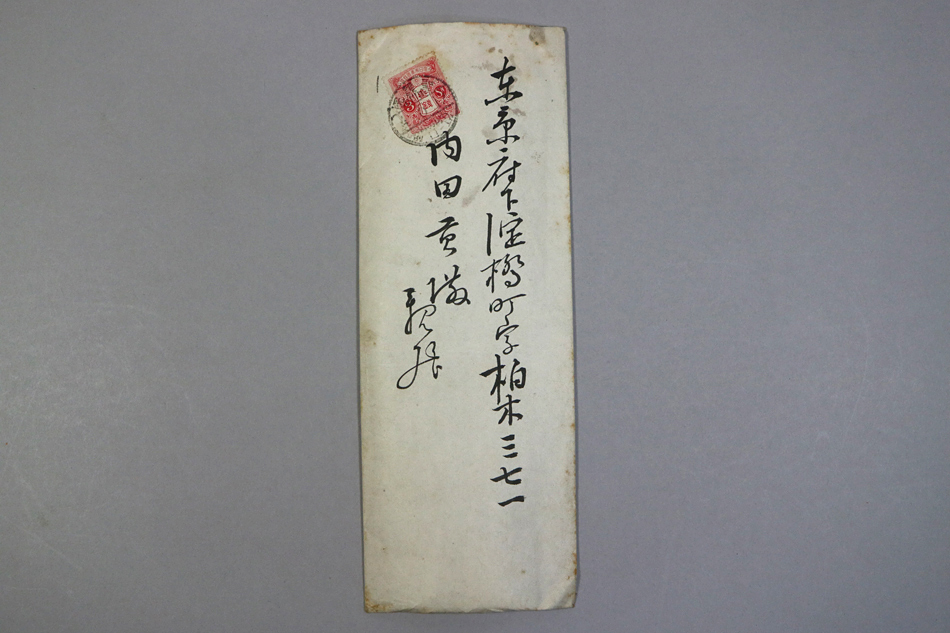 東京府下淀橋町字柏木三七一
内田貢様
親拝